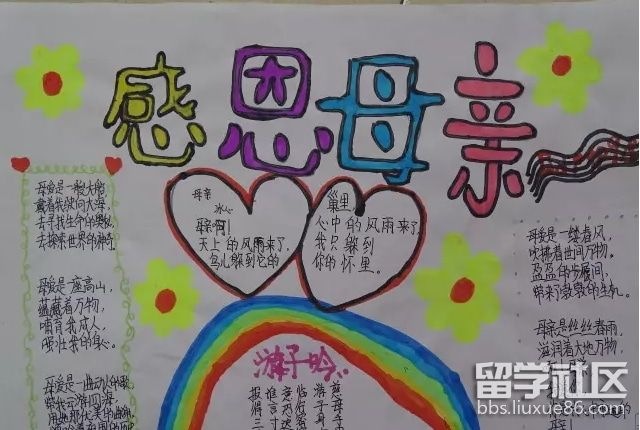 感恩母亲
母爱是一艘大船,
载着我驶向大海,
去寻找生命的奥秘,
去探索世界的神奇。
母爱是一座高山,
蕴藏着万物,
哺育我成人,
母爱是一曲动人的歌
母亲
冰心
母亲啊!
天上的风雨来了,
鸟儿躲到它的
巢里
心中的风雨来了,
我只躲到
你的怀里。
游子吟
慈母手
游子身
临行密
意恐迟
谁言寸
报得三
母爱是一缕春风,
吹拂着世间万物。
盈盈的步履间,
带来了致致的生机。
母亲是丝丝春雨,
滋润着大地万物,
留学社区
bbs.liuxue86.com